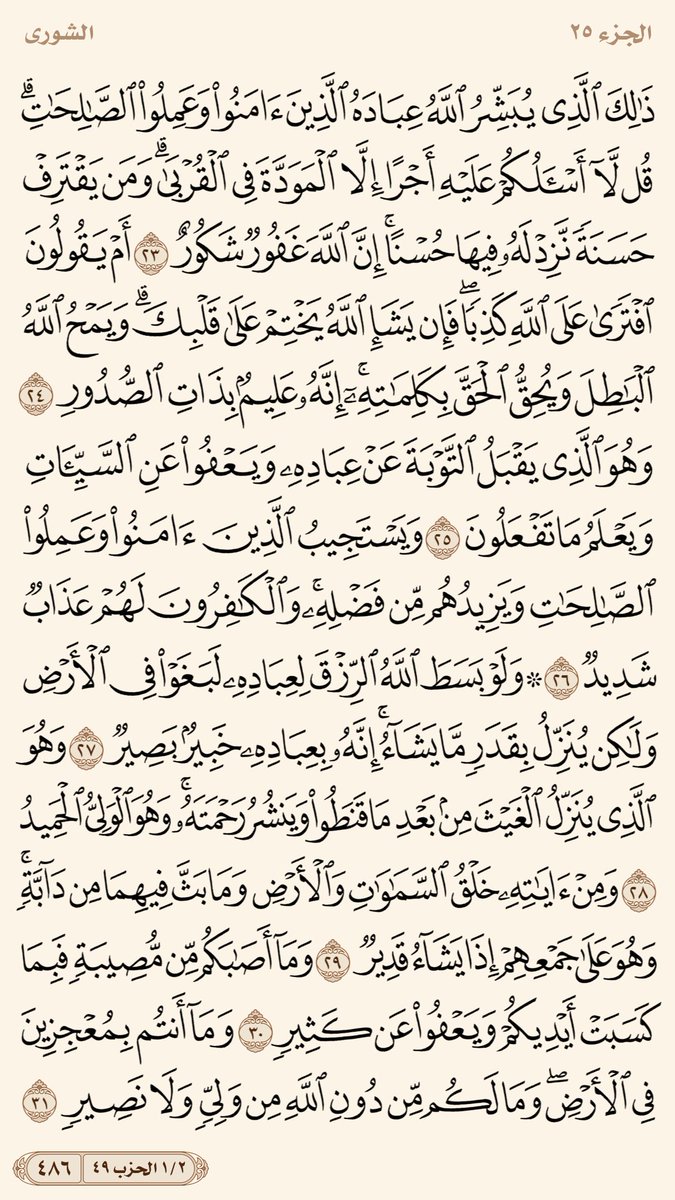 الجزء ٢٥ الشورى
ذَٰلِكَ ٱلَّذِى يُبَشِّرُ ٱللَّهُ عِبَادَهُ ٱلَّذِينَ ءَامَنُوا۟ وَعَمِلُوا۟ ٱلصَّـٰلِحَـٰتِ ۗ
قُل لَّآ أَسْـَٔلُكُمْ عَلَيْهِ أَجْرًا إِلَّا ٱلْمَوَدَّةَ فِى ٱلْقُرْبَىٰ ۗ وَمَن يَقْتَرِفْ
حَسَنَةً نَّزِدْ لَهُۥ فِيهَا حُسْنًا ۚ إِنَّ ٱللَّهَ غَفُورٌ شَكُورٌ ٢٣ أَمْ يَقُولُونَ
ٱفْتَرَىٰ عَلَى ٱللَّهِ كَذِبًا ۖ فَإِن يَشَإِ ٱللَّهُ يَخْتِمْ عَلَىٰ قَلْبِكَ ۗ وَيَمْحُ ٱللَّهُ
ٱلْبَـٰطِلَ وَيُحِقُّ ٱلْحَقَّ بِكَلِمَـٰتِهِۦٓ ۚ إِنَّهُۥ عَلِيمٌۢ بِذَاتِ ٱلصُّدُورِ ٢٤
وَهُوَ ٱلَّذِى يَقْبَلُ ٱلتَّوْبَةَ عَنْ عِبَادِهِۦ وَيَعْفُوا۟ عَنِ ٱلسَّيِّـَٔاتِ
وَيَعْلَمُ مَا تَفْعَلُونَ ٢٥ وَيَسْتَجِيبُ ٱلَّذِينَ ءَامَنُوا۟ وَعَمِلُوا۟
ٱلصَّـٰلِحَـٰتِ وَيَزِيدُهُم مِّن فَضْلِهِۦ ۚ وَٱلْكَـٰفِرُونَ لَهُمْ عَذَابٌ
شَدِيدٌ ٢٦ ۞ وَلَوْ بَسَطَ ٱللَّهُ ٱلرِّزْقَ لِعِبَادِهِۦ لَبَغَوْا۟ فِى ٱلْأَرْضِ
وَلَـٰكِن يُنَزِّلُ بِقَدَرٍ مَّا يَشَآءُ ۚ إِنَّهُۥ بِعِبَادِهِۦ خَبِيرٌۢ بَصِيرٌ ٢٧ وَهُوَ
ٱلَّذِى يُنَزِّلُ ٱلْغَيْثَ مِنۢ بَعْدِ مَا قَنَطُوا۟ وَيَنشُرُ رَحْمَتَهُۥ ۚ وَهُوَ ٱلْوَلِىُّ ٱلْحَمِيدُ
٢٨ وَمِنْ ءَايَـٰتِهِۦ خَلْقُ ٱلسَّمَـٰوَٰتِ وَٱلْأَرْضِ وَمَا بَثَّ فِيهِمَا مِن دَآبَّةٍ ۚ
وَهُوَ عَلَىٰ جَمْعِهِمْ إِذَا يَشَآءُ قَدِيرٌ ٢٩ وَمَآ أَصَـٰبَكُم مِّن مُّصِيبَةٍ فَبِمَا
كَسَبَتْ أَيْدِيكُمْ وَيَعْفُوا۟ عَن كَثِيرٍ ٣٠ وَمَآ أَنتُم بِمُعْجِزِينَ
فِى ٱلْأَرْضِ ۖ وَمَا لَكُم مِّن دُونِ ٱللَّهِ مِن وَلِىٍّ وَلَا نَصِيرٍ ٣١
١/٢ الحزب ٤٩ ٤٨٦